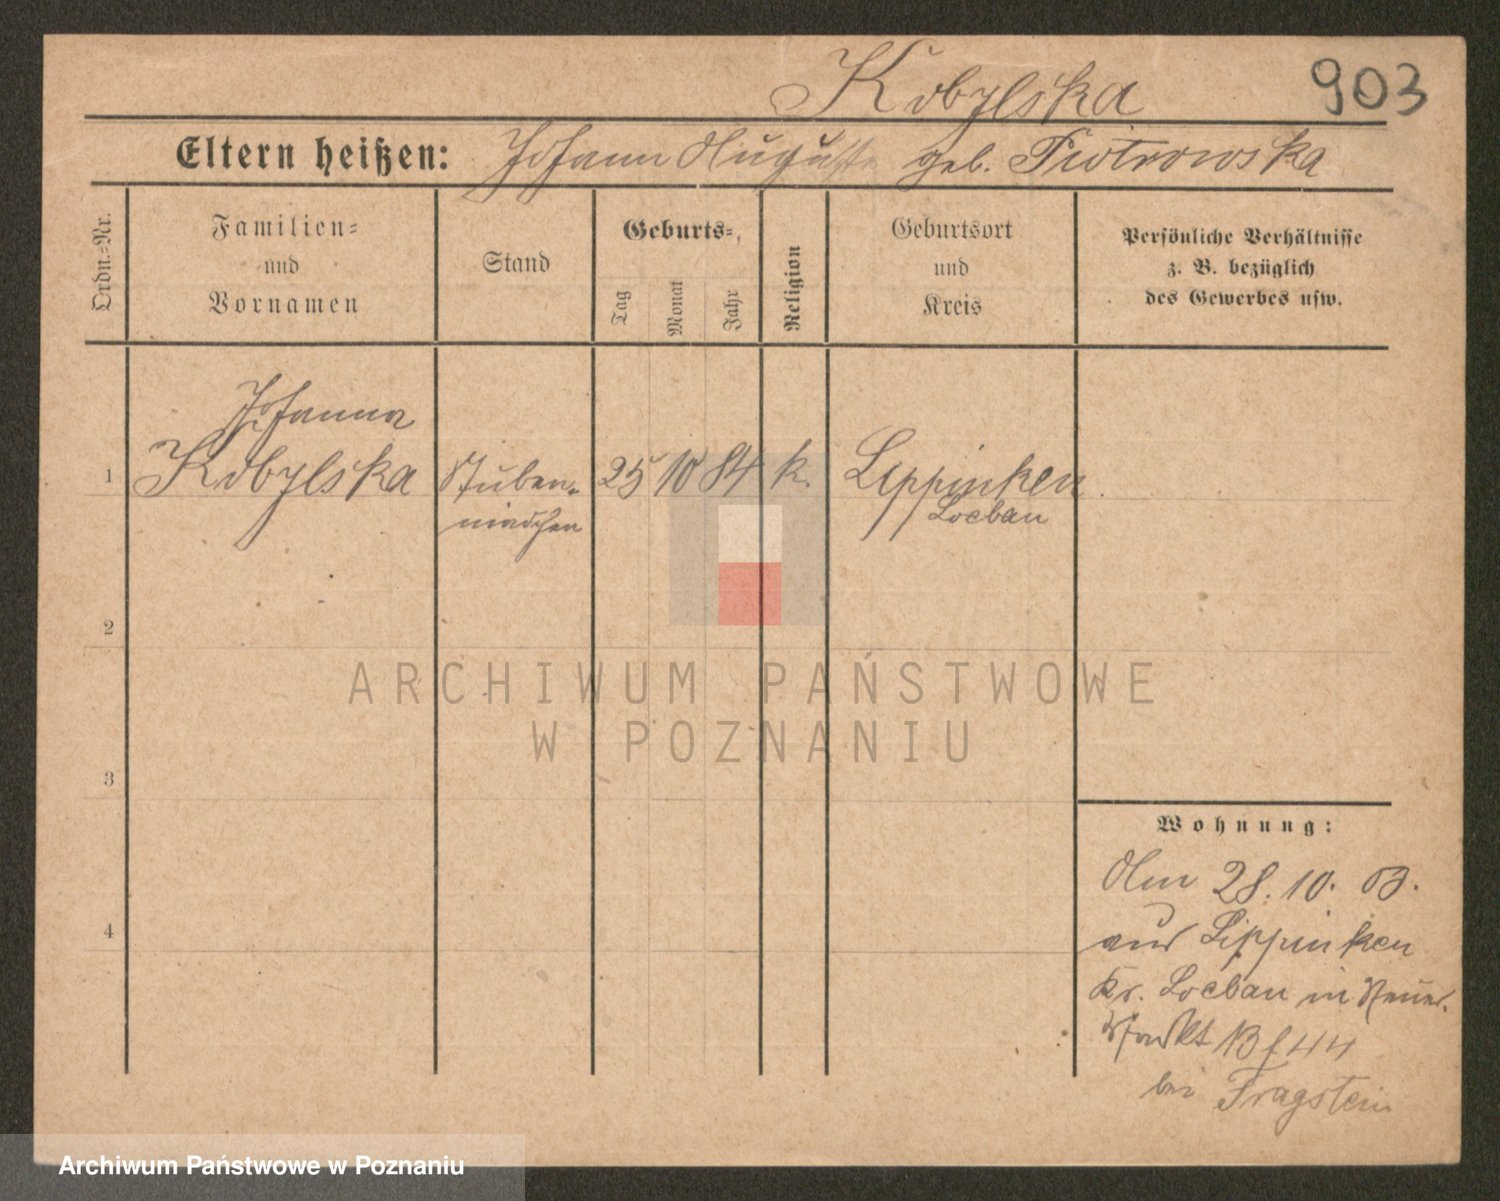 Kobylska
903
Eltern heißen: Johann Auguste geb. Piotrowska
Ordn.-Nr.
Familien-
und
Vornamen
Stand
Geburts-
Tag
Monat
Jahr
Religion
Geburtsort
und
Kreis
Persönliche Verhältnisse
z. B. bezüglich
des Gewerbes usw.
Johanna
1 Kobylska Stuben- 25 10 84 k. Lippinken
mädchen Loebau
2
ARCHIWUM PAŃSTWOWE
W POZNANIU
3
Wohnung:
Am 28. 10. 03.
4
aus Lippinken
Kr. Loebau in
44
bei Fragstein
Archiwum Państwowe w Poznaniu